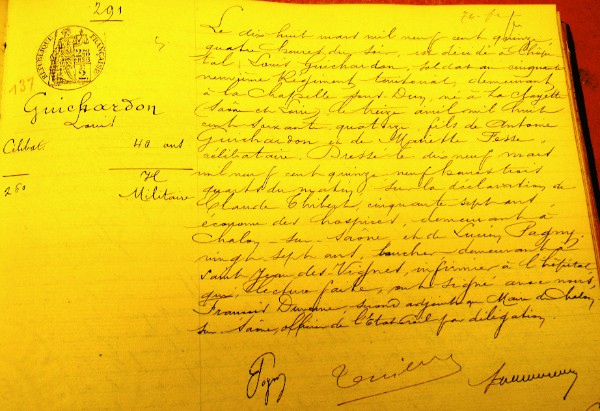 291
76 fr
RÉPUBLIQUE FRANÇAISE
137
Guichardon
Louis
Célibat. 40 ans
H
Militaire
260
Le dix huit mars mil neuf cent quinze
quatre heures du soir, est décédé à l'hôpi-
tal, Louis Guichardon, soldat au cinquante
neuvième Régiment territorial, demeurant
à la Chapelle sous Dun, né à la Clayette
Saône et Loire, le treize avril mil huit
cent soixante quatorze, fils de Antoine
Guichardon et de Mariette Fesse,
célibataire. Dressé le dix neuf mars
mil neuf cent quinze neuf heures trois
quarts du matin, sur la déclaration de
Claude Thibert, cinquante sept ans,
économe des hospices, demeurant à
Chalon-sur-Saône, et de Lucien Pagny,
vingt sept ans, boucher demeurant à
Saint Jean des Vignes, infirmier à l'hôpital,
qui, lecture faite, ont signé avec nous,
Francis second adjoint au Maire de Chalon
sur Saône, officier de l'Etat Civil par délégation.
Pagny